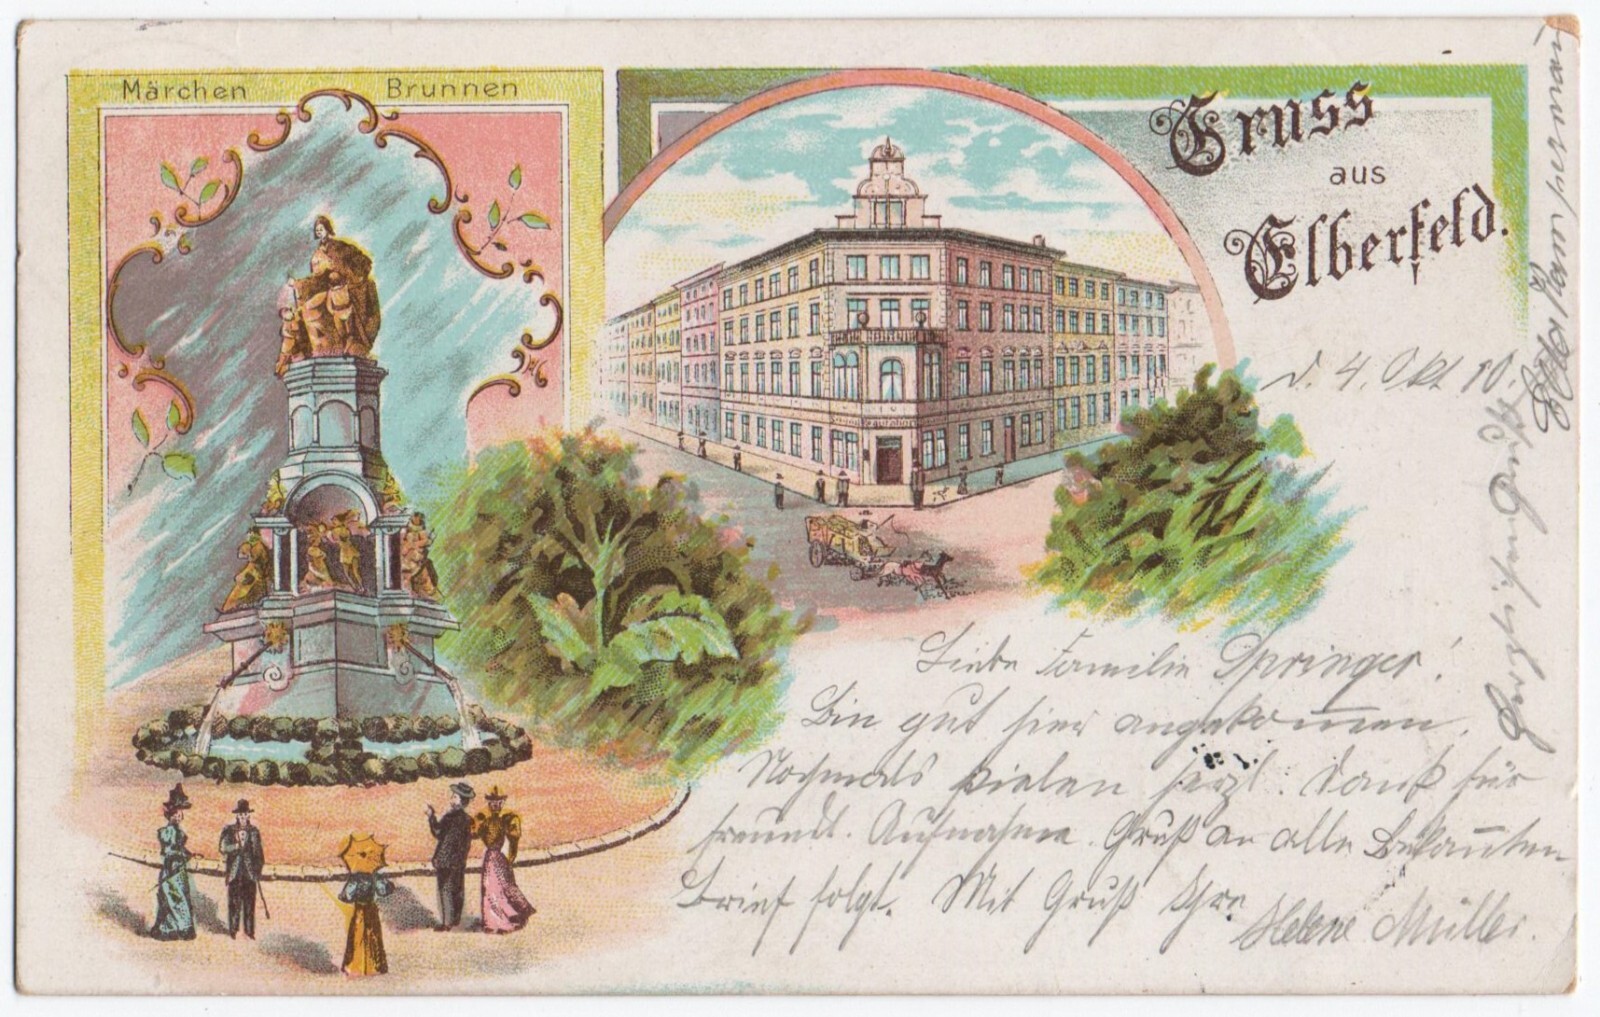 Märchen Brunnen
Gruss
aus
Elberfeld.
d. 4. Okt 10.
Liebe Familie Springer!
Bin gut hier angekommen.
Nochmals vielen herzl. Dank für
freundl. Aufnahme. Gruß an alle Bekannten
Brief folgt. Mit Gruß Ihre
Helene Müller.